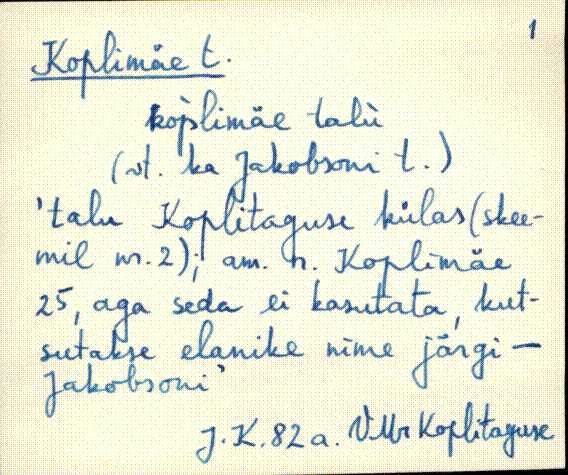 1
Koplimäe t.
kop̀limäe talù
(vt. ka Jakobsoni t.)
'talu Koplitaguse külas (skee-
mil nr. 2); am. n. Koplimäe
25, aga seda ei kasutata, kut-
sutakse elanike nime järgi –
Jakobsoni'
J.K. 82 a. VMr Koplitaguse